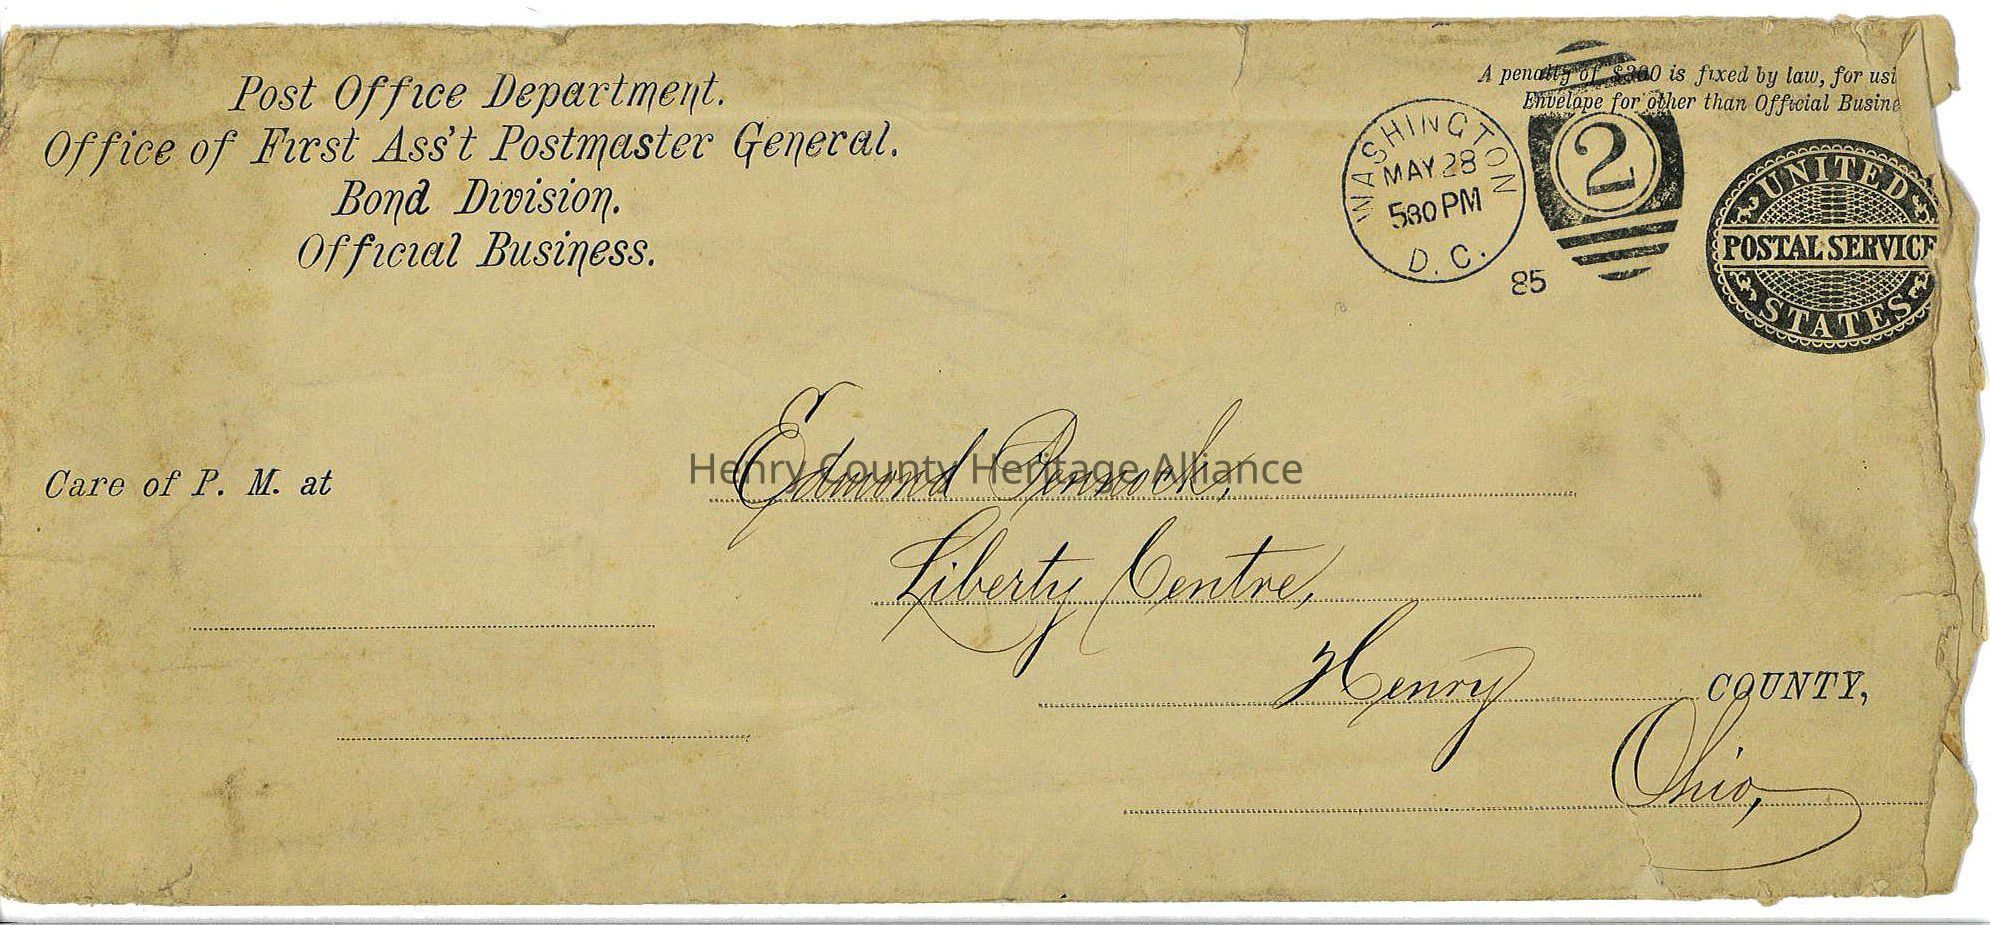 Post Office Department.
Office of First Ass't Postmaster General.
Bond Division.
Official Business.
A penalty of $300 is fixed by law, for usi
Envelope for other than Official Busine
WASHINGTON
MAY 28
530 PM
D.C.
85
2
UNITED
POSTAL SERVICE
STATES
Care of P. M. at
Edmond Pennock,
Henry County Heritage Alliance
Liberty Centre,
Henry COUNTY,
Ohio,